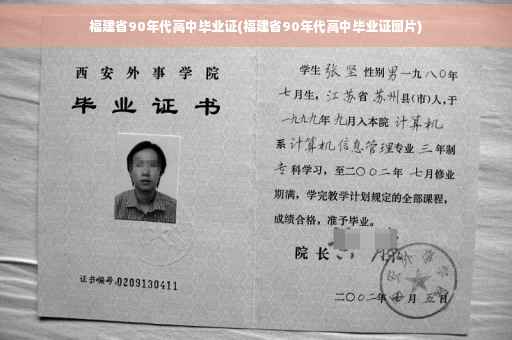 福建省90年代高中毕业证(福建省90年代高中毕业证图片)
西安外事学院
毕业证书
证书编号:0209130411
学生 张坚 性别 男 一九八〇年
七月生, 江苏省 苏州县(市)人,于
一九九九年 九月入本院 计算机
系 计算机信息管理专业 三 年制
专 科学习,至二〇〇二年 七月修业
期满,学完教学计划规定的全部课程,
成绩合格,准予毕业。
院长
二〇〇二年 月 五日